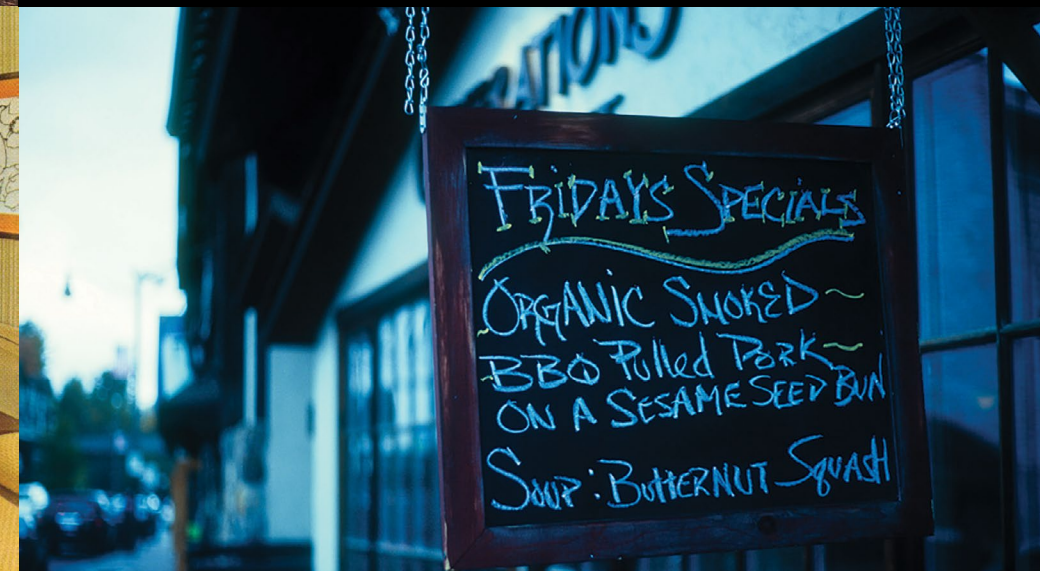 FRiDAYS SPECiALS
ORGANiC SMOKED ~
~BBQ Pulled PORK~
ON A SESAME SEED BUN
SOUP: BUTTERNUT SQUASH